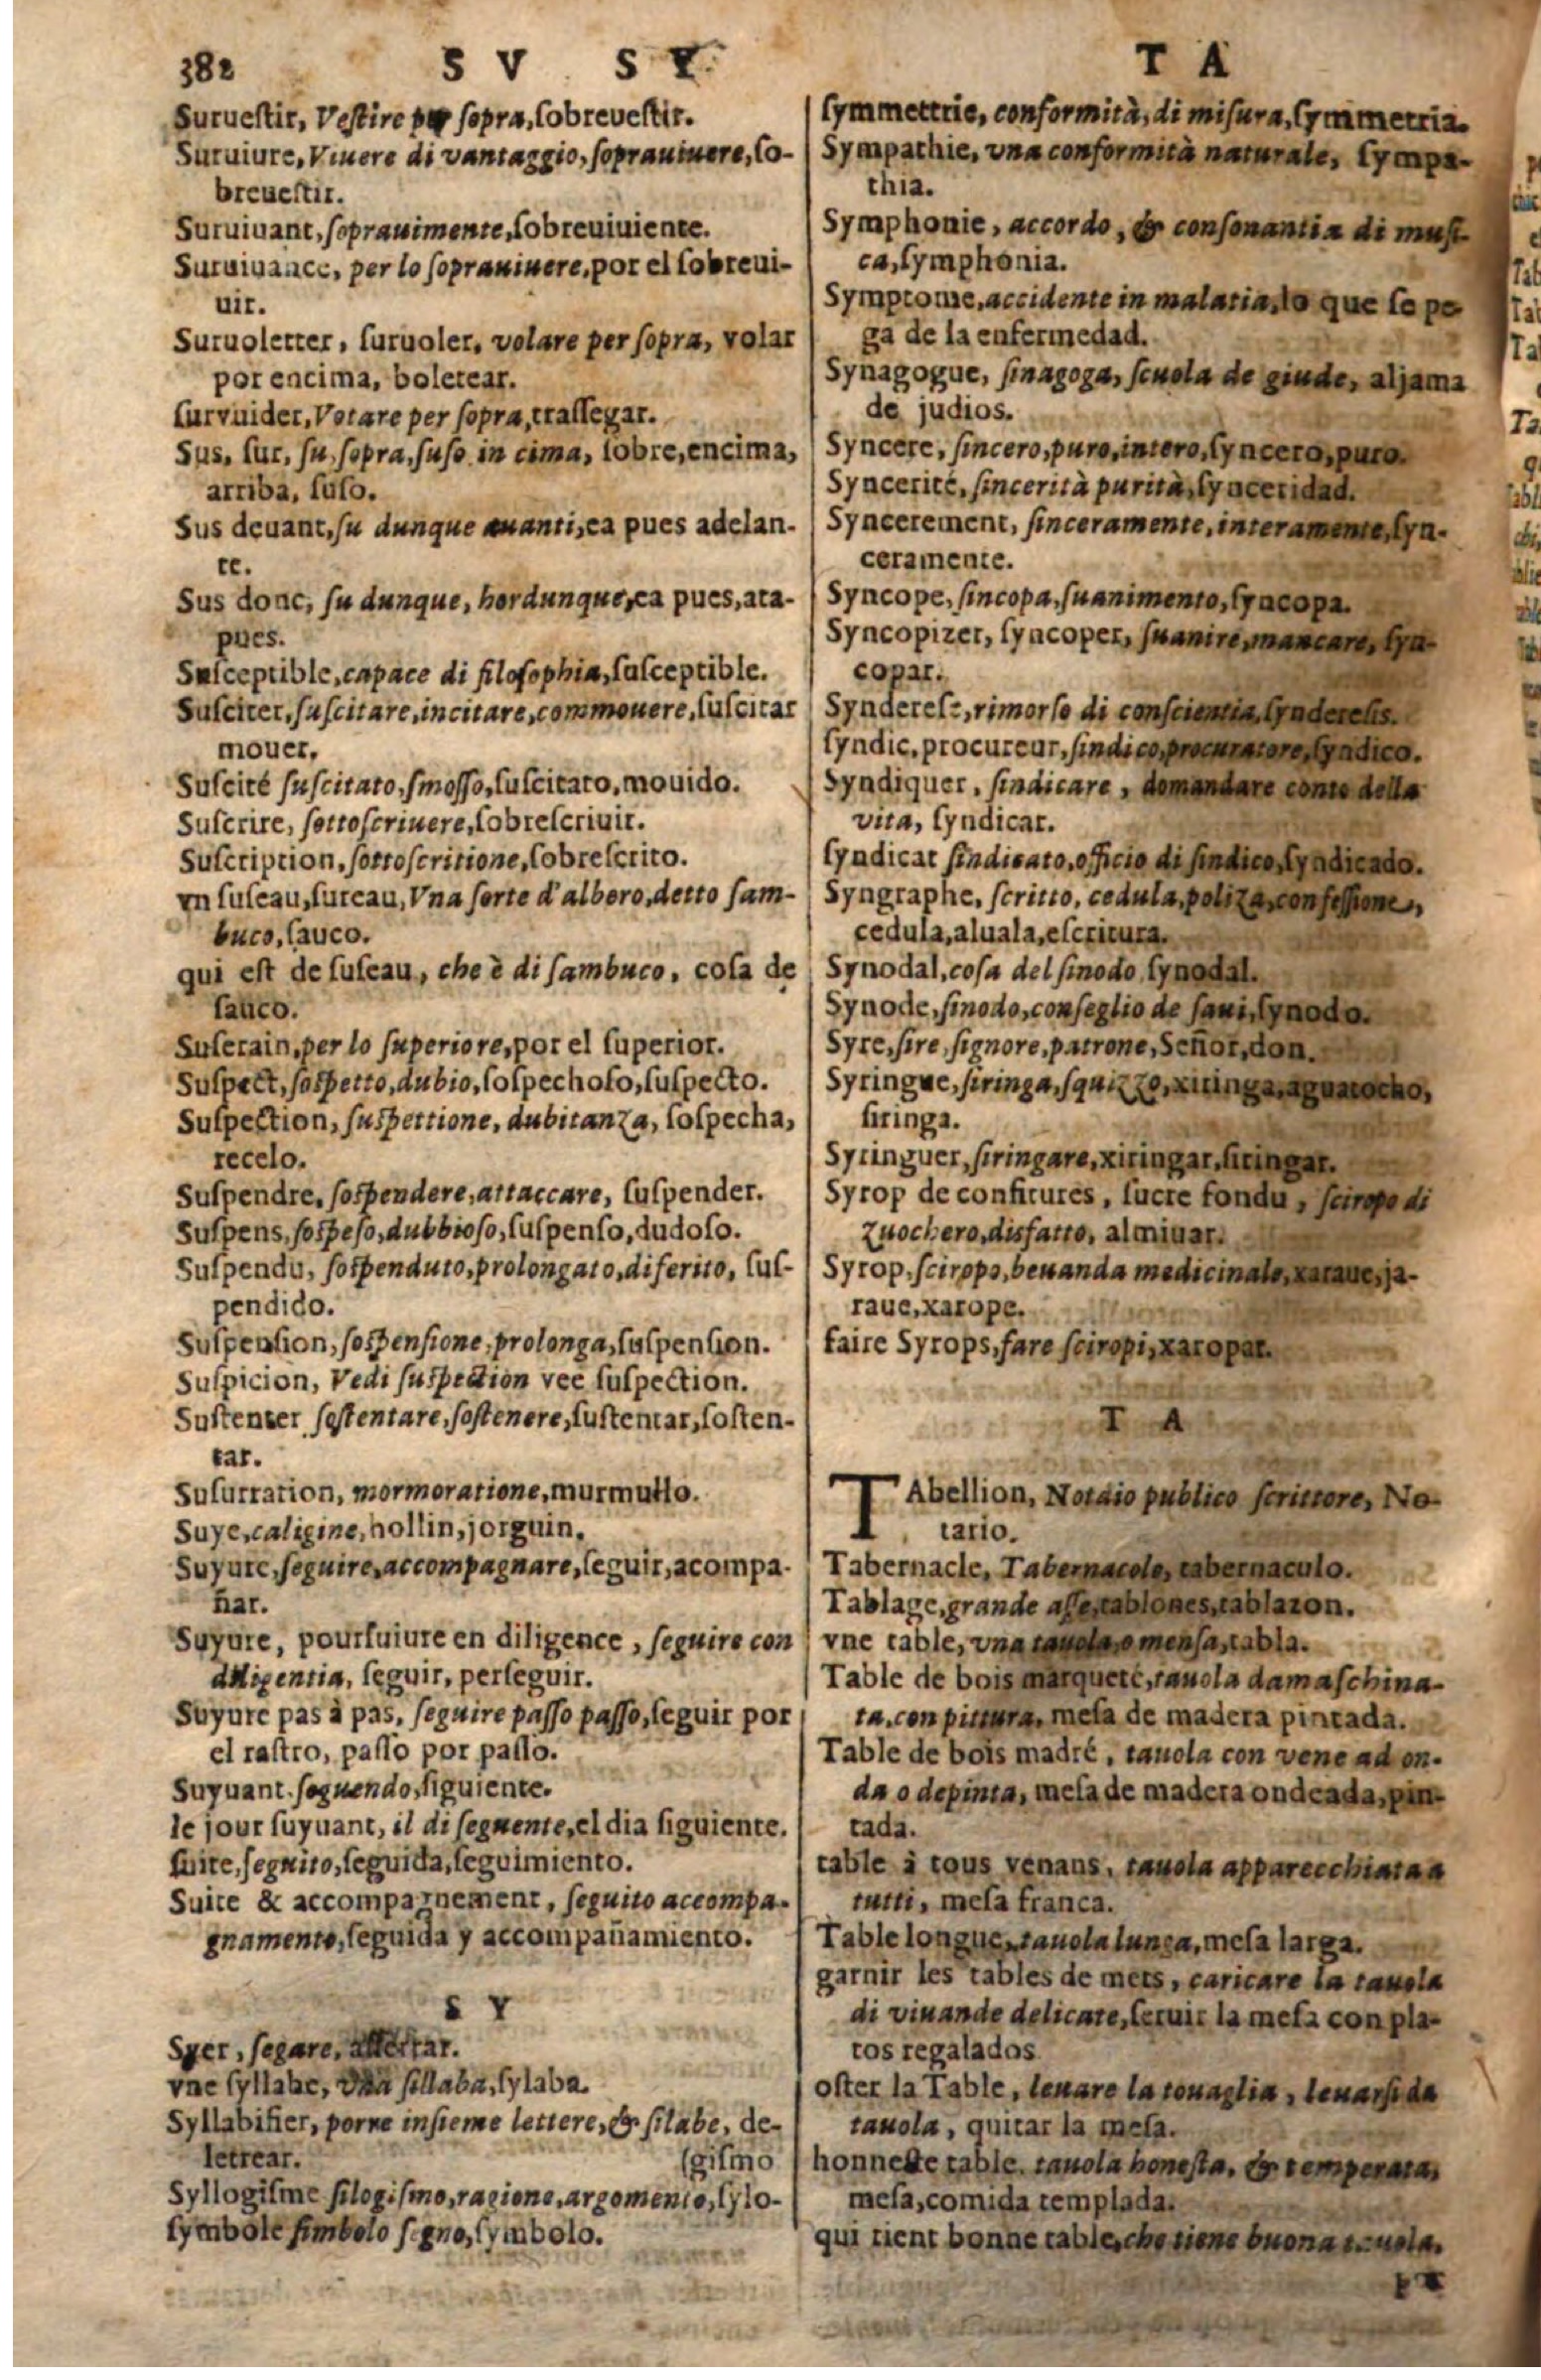 382 S V S Y
Suruestir, Vestire per sopra, sobrevestir.
Suruiure, Viuere di vantaggio, soprauiuere, so-
breuestir.
Suruiuant, soprauimente, sobreuiuiente.
Suruiuance, per lo soprauiuere, por el sobreui-
uir.
Suruoletter, suruoler, volare per sopra, volar
por encima, boletear.
survuider, Votare per sopra, trassegar.
Sus, sur, su, sopra, suso in cima, sobre, encima,
arriba, suso.
Sus deuant, su dunque auanti, ea pues adelan-
te.
Sus donc, su dunque, hordunque, ea pues, ata-
pues.
Susceptible, capace di filosophia, susceptible.
Susciter, suscitare, incitare, commouere, suscitar
mouer.
Suscité suscitato, smosso, suscitato, mouido.
Suscrire, sottoscriuere, sobrescriuir.
Suscription, sottoscritione, sobrescrito.
vn suseau, sureau, Vna sorte d'albero, detto sam-
buco, sauco.
qui est de suseau, che è di sambuco, cosa de
sauco.
Suserain, per lo superiore, por el superior.
Suspect, sospetto, dubio, sospechoso, suspecto.
Suspection, suspettione, dubitanza, sospecha,
recelo.
Suspendre, sospendere, attaccare, suspender.
Suspens, sospeso, dubbioso, suspenso, dudoso.
Suspendu, sospenduto, prolongato, diferito, sus-
pendido.
Suspension, sospensione, prolonga, suspension.
Suspicion, Vedi suspection vee suspection.
Sustenter sostentare, sostenere, sustentar, sosten-
tar.
Susurration, mormoratione, murmullo.
Suye, caligine, hollin, jorguin.
Suyure, seguire, accompagnare, seguir, acompa-
ñar.
Suyure, poursuiure en diligence, seguire con
diligentia, seguir, perseguir.
Suyure pas à pas, seguire passo passo, seguir por
el rastro, passo por passo.
Suyuant. seguendo, siguiente.
le jour suyuant, il di seguente, el dia siguiente.
suite, seguito, seguida, seguimiento.
Suite & accompagnement, seguito accompa-
gnamento, seguida y accompañamiento.
S Y
Syer, segare, asserrar.
vne syllabe, Vna sillaba, sylaba.
Syllabifier, porre insieme lettere, & silabe, de-
letrear. (gismo
Syllogisme silogismo, ragione, argomento, sylo-
symbole simbolo segno, symbolo.
T A
symmettrie, conformità, di misura, symmetria.
Sympathie, vna conformità naturale, sympa-
thia.
Symphonie, accordo, & consonantia di musi-
ca, symphonia.
Symptome, accidente in malatia, lo que se pe-
ga de la enfermedad.
Synagogue, sinagoga, scuola de giude, aljama
de judios.
Syncere, sincero, puro, intero, syncero, puro.
Syncerité, sincerità purità, synceridad.
Syncerement, sinceramente, interamente, syn-
ceramente.
Syncope, sincopa, suanimento, syncopa.
Syncopizer, syncoper, suanire, mancare, syn-
copar.
Synderese, rimorso di conscientia, synderesis.
syndic, procureur, sindico, procuratore, syndico.
Syndiquer, sindicare, domandare conto della
vita, syndicar.
syndicat sindicato, officio di sindico, syndicado.
Syngraphe, scritto, cedula, poliza, confessione,
cedula, aluala, escritura.
Synodal, cosa del sinodo synodal.
Synode, sinodo, conseglio de saui, synodo.
Syre, sire, signore, patrone, Señor, don.
Syringue, siringa, squizzo, xiringa, aguatocho,
siringa.
Syringuer, siringare, xiringar, siringar.
Syrop de confitures, sucre fondu, sciropo di
Zuochero, disfatto, almiuar.
Syrop, sciropo, beuanda medicinale, xaraue, ja-
raue, xarope.
faire Syrops, fare sciropi, xaropar.
T A
TAbellion, Notaio publico scrittore, No-
tario.
Tabernacle, Tabernacolo, tabernaculo.
Tablage, grande asse, tablones, tablazon.
vne table, vna tauola, o mensa, tabla.
Table de bois marqueté, tauola damaschina-
ta, con pittura, mesa de madera pintada.
Table de bois madré, tauola con vene ad on-
da o depinta, mesa de madera ondeada, pin-
tada.
table à tous venans, tauola apparecchiata a
tutti, mesa franca.
Table longue, tauola lunga, mesa larga.
garnir les tables de mets, caricare la tauola
di viuande delicate, seruir la mesa con pla-
tos regalados
oster la Table, leuare la touaglia, leuarsi da
tauola, quitar la mesa.
honneste table. tauola honesta, & temperata,
mesa, comida templada.
qui tient bonne table, che tiene buona tauola,